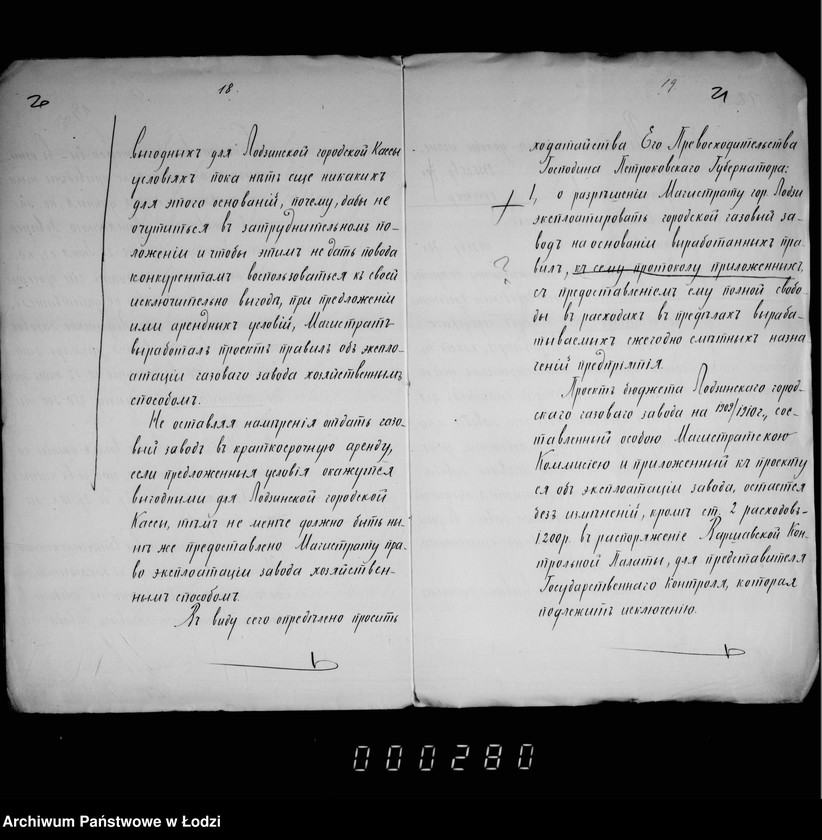 20
18.
выгодныхъ для Лодзинской городской Кассы
условіяхъ пока нѣтъ еще никакихъ
для этого основаній, почему, дабы не
очутиться въ затруднительномъ по-
ложеніи и чтобы этимъ не дать повода
конкурентамъ воспользоваться къ своей
исключительно выгодѣ, при предложеніи
ими арендныхъ условій, Магистратъ
выработалъ проектъ правилъ объ экспло-
атаціи газоваго завода хозяйственнымъ
способомъ.
Не оставляя намѣренія отдать газо-
вый заводъ въ краткосрочную аренду,
если предложенныя условія окажутся
выгодными для Лодзинской городской
Кассы, тѣмъ не менѣе должно быть ны-
нѣ же предоставлено Магистрату пра-
во эксплоатаціи завода хозяйствен-
нымъ способомъ.
Въ виду сего опредѣлено просить
19
21
ходатайства Его Превосходительства
Господина Петроковскаго Губернатора:
1, о разрѣшеніи Магистрату гор. Лодзи
эксплоатировать городской газовый за-
водъ на основаніи выработанныхъ пра-
?
вилъ, къ сему протоколу приложенныхъ,
съ предоставленіемъ ему полной свобо-
ды въ расходахъ въ предѣлахъ выраба-
тываемыхъ ежегодно смѣтныхъ назна
ченій предпріятія.
Проектъ бюджета Лодзинскаго город-
скаго газоваго завода на 1909/1910 г., сос-
тавленный особою Магистратскою
Коммисіею и приложенный къ проекту
ея объ эксплоатаціи завода, остается
безъ измѣненій, кромѣ ст. 2 расходовъ-
1200 р. въ распоряженіе Варшавской Кон-
трольной Палаты, для представителя
Государственнаго Контроля, которая
подлежитъ исключенію.
000280
Archiwum Państwowe w Łodzi